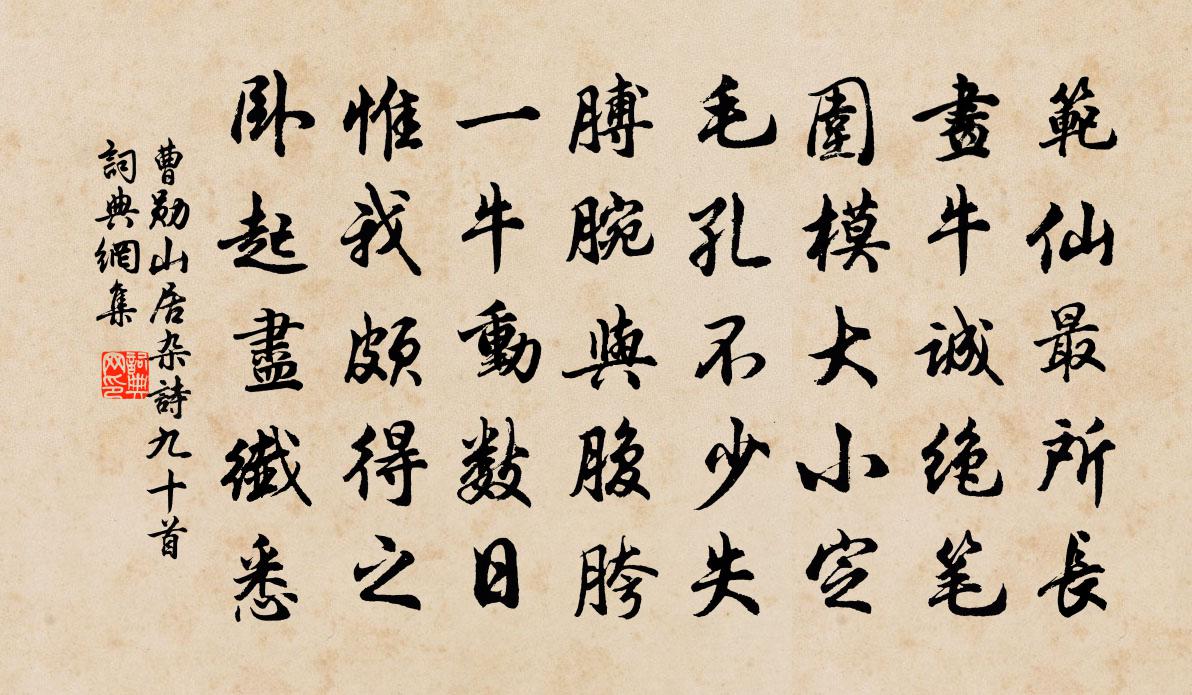 範仙最所長
畫牛誠絶笔
圍模大小定
毛孔不少失
膊腕與腹胯
一牛動數日
惟我頗得之
臥起盡纖悉
曹勛山居杂詩九十首
詞典網集
詞典网印